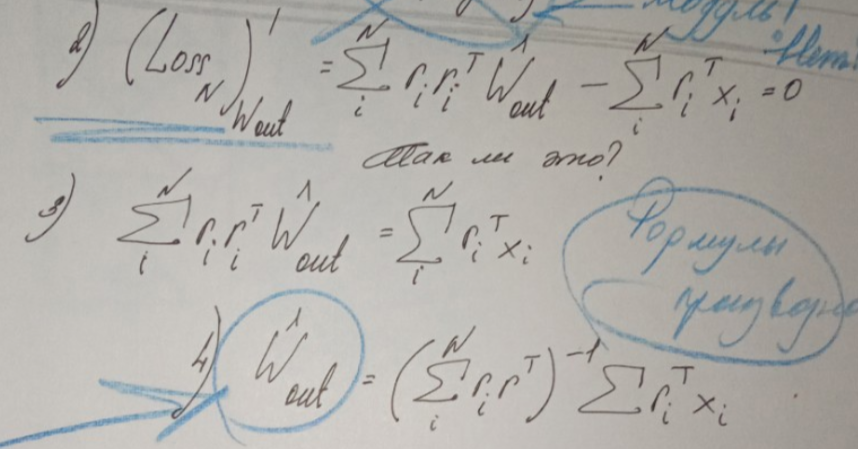 модуль!
Нет!
2) (Loss_N)'_{Wout} = \sum_i^N r_i r_i^T \hat{W}_{out} - \sum_i^N r_i^T x_i = 0
Так ли это?
3) \sum_i^N r_i r_i^T \hat{W}_{out} = \sum_i^N r_i^T x_i
Формулы
4) \hat{W}_{out} = (\sum_i^N r_i r^T)^{-1} \sum r_i^T x_i